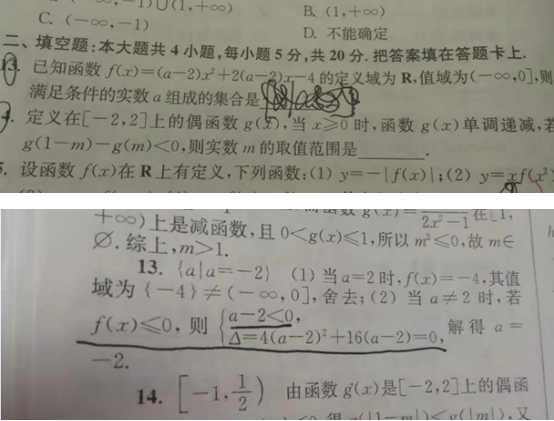 -1)∪(1,+∞)
B. (1,+∞)
C. (-∞,-1)
D. 不能确定
二、填空题:本大题共 4 小题,每小题 5 分,共 20 分. 把答案填在答题卡上.
13. 已知函数 f(x)=(a-2)x²+2(a-2)x-4 的定义域为 R,值域为(-∞,0],则
满足条件的实数 a 组成的集合是
定义在[-2,2]上的偶函数 g(x),当 x≥0 时,函数 g(x)单调递减,若
g(1-m)-g(m)<0,则实数 m 的取值范围是________.
5. 设函数 f(x)在 R 上有定义,下列函数:(1) y=-|f(x)|;(2) y=xf(x²)
2x²-1 在[1,
+∞)上是减函数,且 0<g(x)≤1,所以 m²≤0,故 m∈
∅. 综上,m>1.
13. {a|a=-2} (1) 当 a=2 时,f(x)=-4,其值
域为{-4}≠(-∞,0],舍去;(2) 当 a≠2 时,若
f(x)≤0,则 { a-2<0,
Δ=4(a-2)²+16(a-2)=0, 解得 a=
-2.
14. [-1,1/2) 由函数 g(x)是[-2,2]上的偶函
g(|1-m|)<g(|m|),又